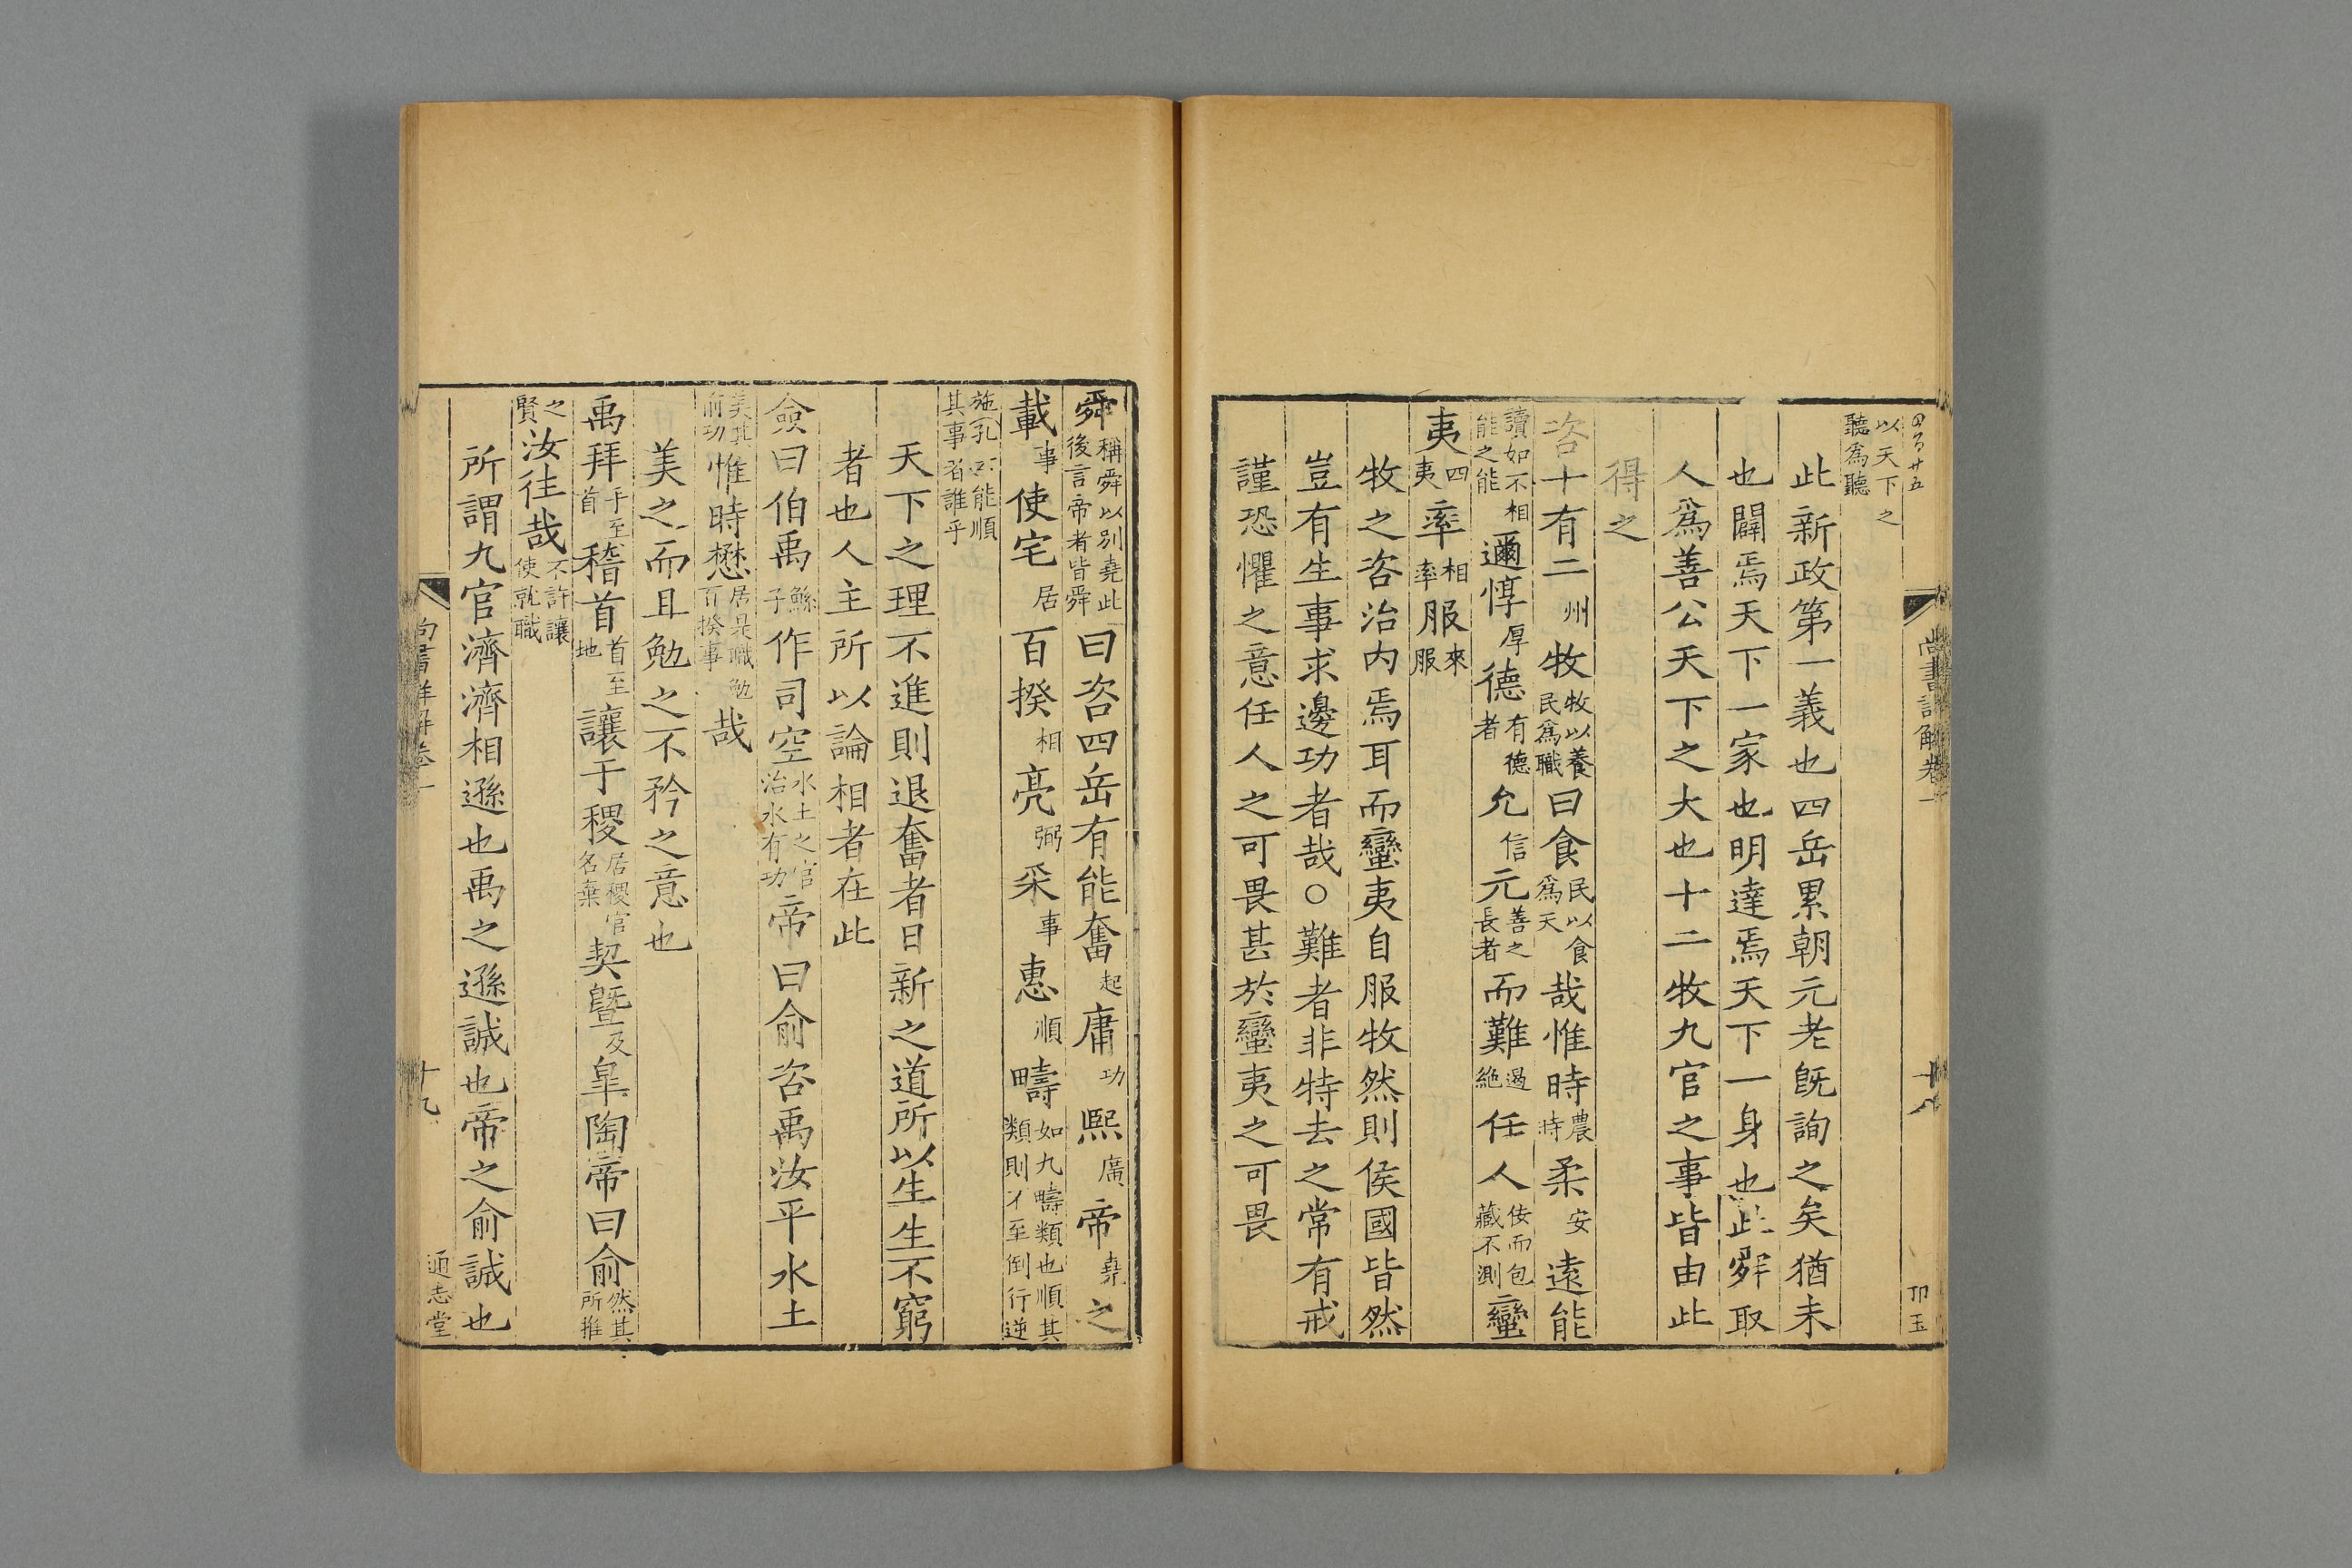 以天下之聽爲聽
此新政第一義也四岳累朝元老旣詢之矣猶未
也闢焉天下一家也明達焉天下一身也此舜取
人爲善公天下之大也十二牧九官之事皆由此
得之
咨十有二州牧牧以養民爲職曰食民以食爲天哉惟時農時柔安遠能
讀如不相能之能邇惇厚德有德者允信元善之長者而難遏絶任人佞而包藏不測蠻
夷四夷率相率服來服
牧之咨治内焉耳而蠻夷自服牧然則侯國皆然
豈有生事求邊功者哉○難者非特去之常有戒
謹恐懼之意任人之可畏甚於蠻夷之可畏
尚書詳解卷一
十八
卬玉
舜稱舜以別堯此後言帝者皆舜曰咨四岳有能奮起庸功熙廣帝堯之
載事使宅居百揆相亮弼采事惠順疇如九疇類也順其類則不至倒行逆
施孔不能順其事者誰乎
天下之理不進則退奮者日新之道所以生生不窮
者也人主所以論相者在此
僉曰伯禹鯀子作司空水土之官治水有功帝曰俞咨禹汝平水土
美其前功惟時懋居是職百揆事勉哉
美之而且勉之不矜之意也
禹拜手至首稽首首至地讓于稷居稷官名棄契曁及皐陶帝曰俞然其所推
之賢汝往哉不許讓使就職
所謂九官濟濟相遜也禹之遜誠也帝之俞誠也
尚書詳解卷一
十九
通志堂